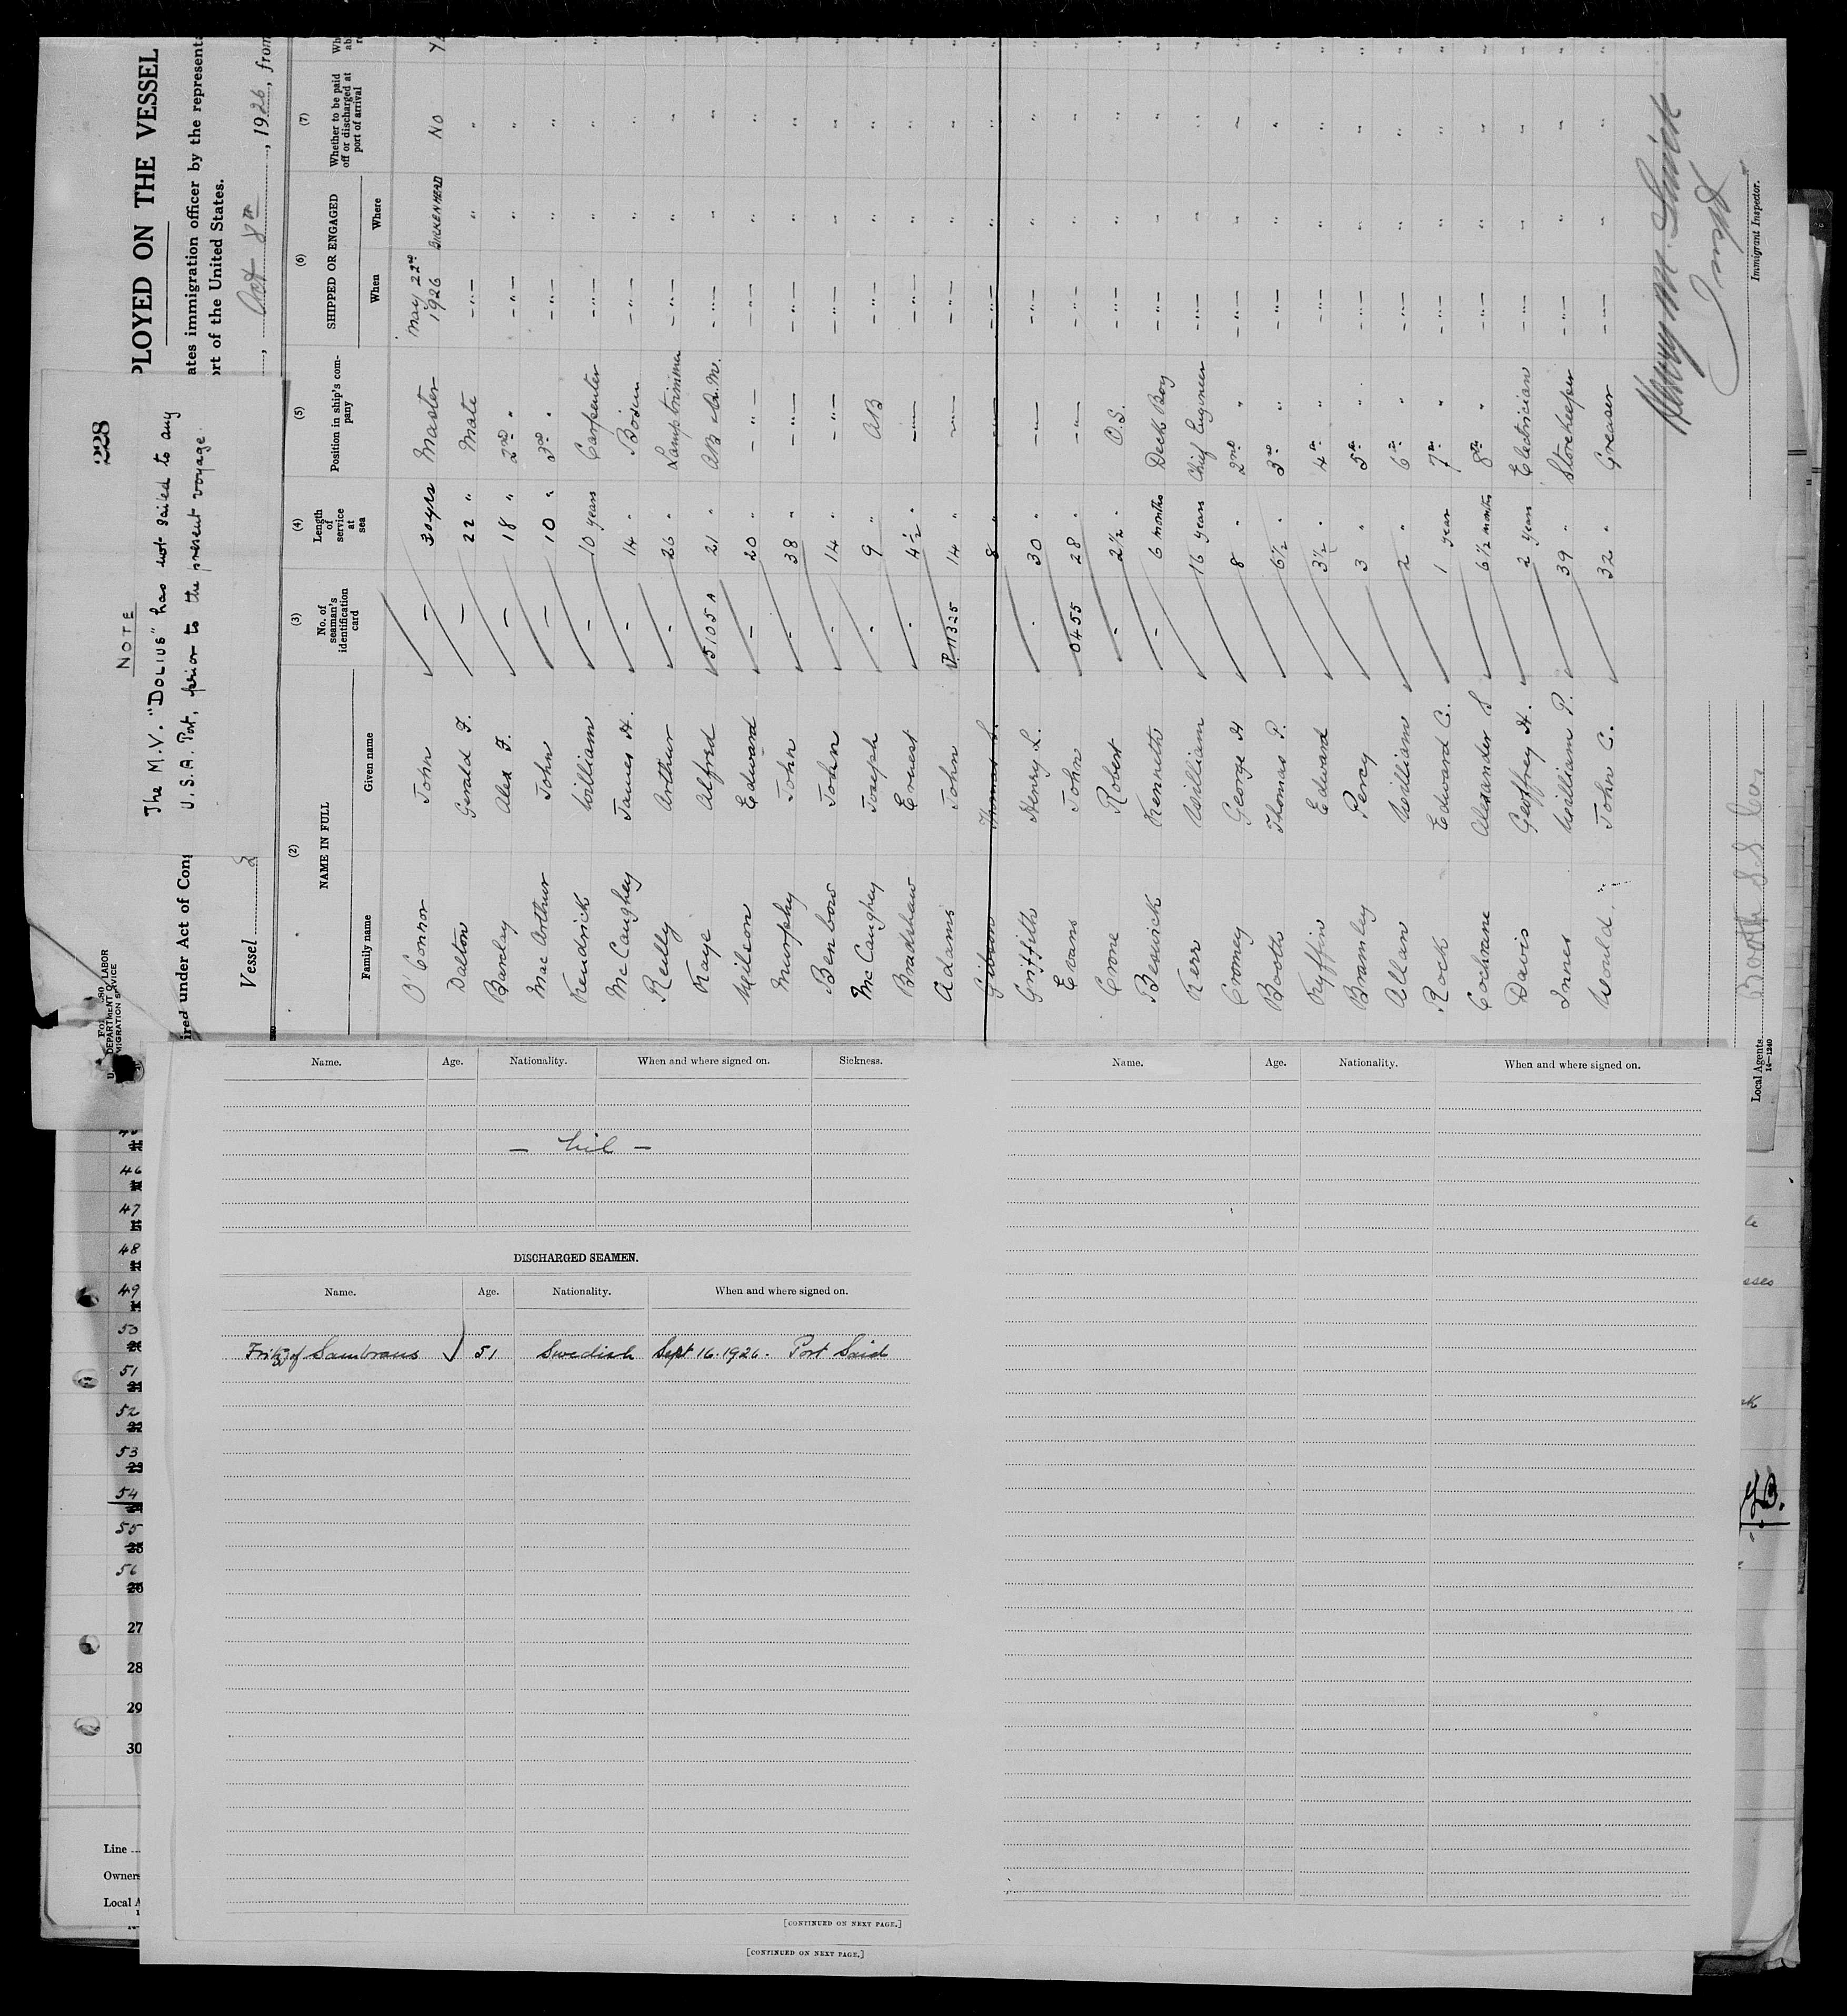 228
NOTE
The M.V. "DOLIUS" has not sailed to any
U.S.A. Port, prior to the present voyage.
PLOYED ON THE VESSEL
ates immigration officer by the representa
ort of the United States.
DEPARTMENT OF LABOR
MIGRATION SERVICE
ired under Act of Cong
Vessel
Oct 8th, 1926, from
(2) (3) (4) (5) (6) (7)
NAME IN FULL No. of seaman's identification card Length of service at sea Position in ship's company SHIPPED OR ENGAGED Whether to be paid off or discharged at port of arrival
Family name Given name When Where
O'Connor John — 30 yrs Master May 22nd 1926 BIRKENHEAD No
Dalton Gerald F. — 22 " Mate —"— " "
Barclay Alex F. — 18 " 2nd " —"— " "
MacArthur John — 10 " 3rd " —"— " "
Kendrick William — 10 years Carpenter —"— " "
McCaughey James H. — 14 " Bosun —"— " "
Reilly Arthur — 26 " Lamptrimmer —"— " "
Kaye Alfred 5105 A 21 " AB —"— " "
Neilson Edward — 20 " —"— —"— " "
Murphy John - 38 " —"— —"— " "
Benbow John - 14 " —"— —"— " "
McCaughey Joseph - 9 " AB —"— " "
Bradshaw Ernest - 4½ " —"— —"— " "
Adams John 11325 14 " —"— —"— " "
Gibson Thomas S. 8 " —"— —"— " "
Griffith Henry L. - 30 " —"— —"— " "
Evans John 0455 28 " —"— —"— " "
Crone Robert — 2½ " O.S. —"— " "
Beswick Kenneth — 6 months Deck Boy —"— " "
Kerr William 16 years Chief Engineer —"— " "
Cromey George H 8 " 2nd " —"— " "
Booth Thomas P. 6½ " 3rd " —"— " "
Kyffin Edward 3½ " 4th " —"— " "
Bramley Percy 3 " 5th " —"— " "
Allan William 2 " 6th " —"— " "
Rock Edward C. 1 year 7th " —"— " "
Cochrane Alexander S 6½ months 8th " —"— " "
Davis Geoffrey H. 2 years Electrician —"— " "
Innes William P. 39 " Storekeeper —"— " "
Would John C. 32 " Greaser —"— " "
Immigrant Inspector.
Local Agents Booth SS Co.
14—1240
Name. Age. Nationality. When and where signed on. Sickness.
— Nil —
DISCHARGED SEAMEN.
Name. Age. Nationality. When and where signed on.
Sambraus 51 Swedish Sept 16. 1926. Port Said
[CONTINUED ON NEXT PAGE.]
[CONTINUED ON NEXT PAGE.]
Name. Age. Nationality. When and where signed on.
46
47
48
49
50
51
52
53
54
55
56
27
28
29
30
Line
Owners
Local A